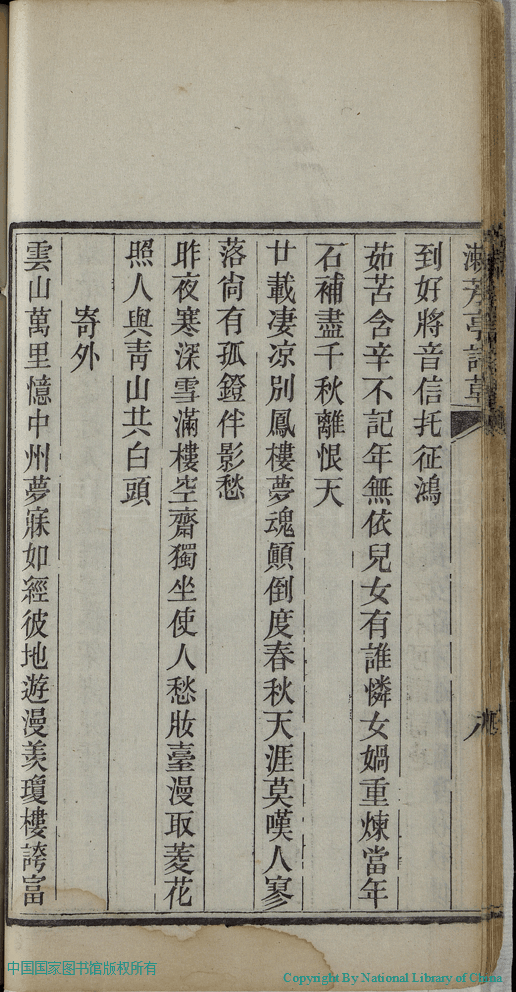 漱芳亭詩草
八
到好將音信托征鴻
茹苦含辛不記年無依兒女有誰憐女媧重煉當年
石補盡千秋離恨天
廿載凄凉別鳳樓夢魂顛倒度春秋天涯莫嘆人寥
落尙有孤鐙伴影愁
昨夜寒深雪滿樓空齋獨坐使人愁妝臺漫取菱花
照人與靑山共白頭
寄外
雲山萬里憶中州夢寐如經彼地遊漫羨瓊樓誇富
中国国家图书馆版权所有
Copyright By National Library of China